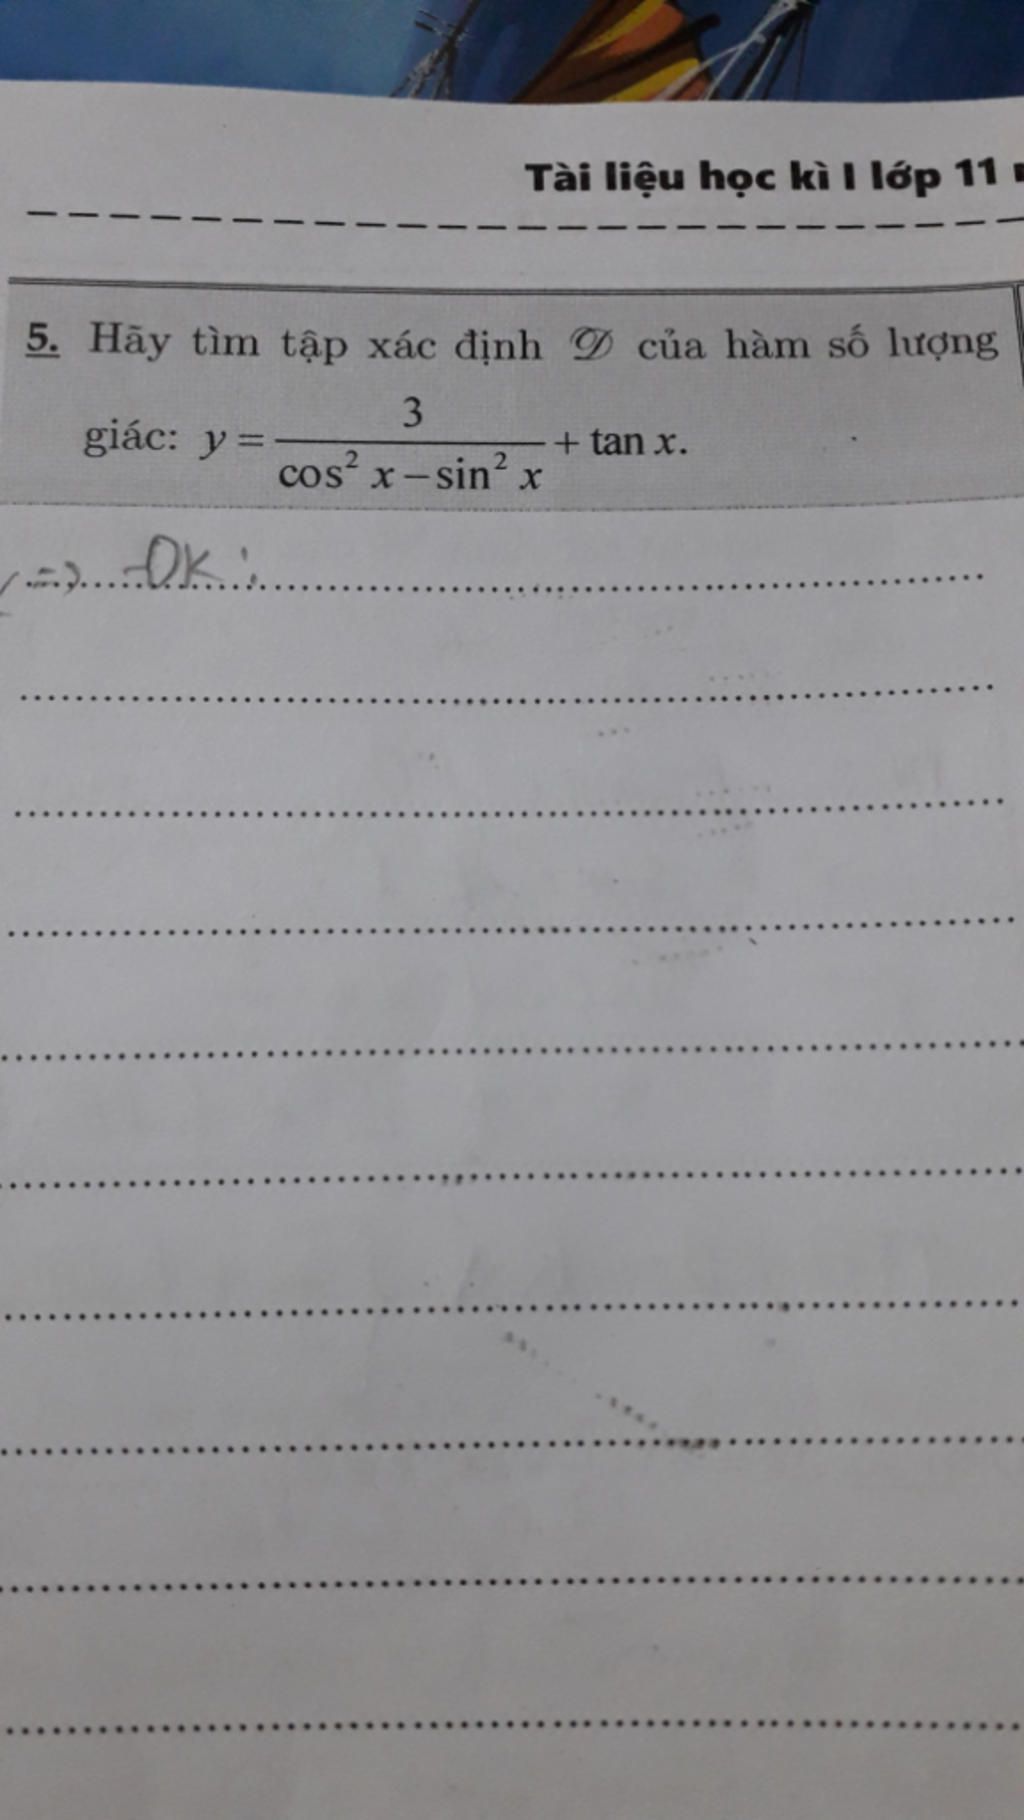 Tài liệu học kì I lớp 11
5. Hãy tìm tập xác định 𝒟 của hàm số lượng
giác: y = 3 / (cos² x − sin² x) + tan x.
=> ĐK :